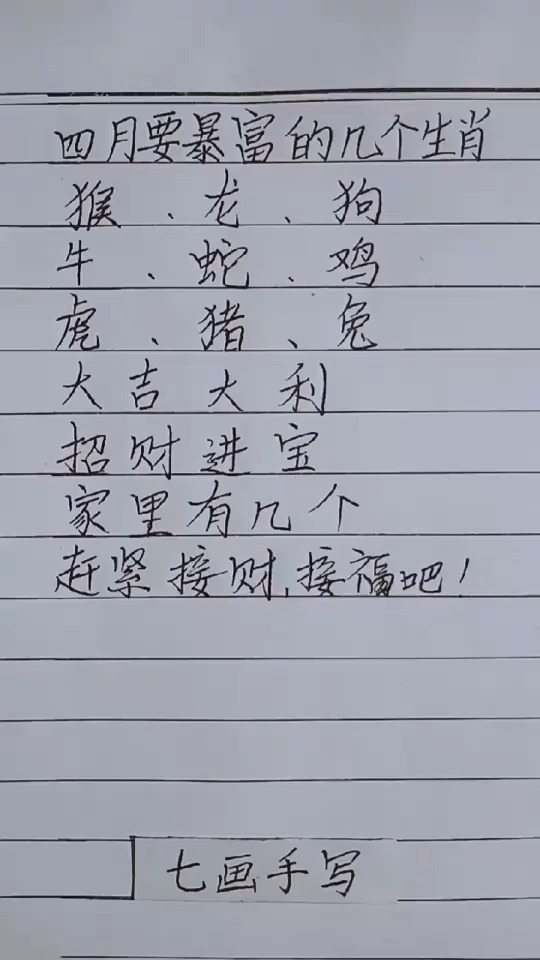 四月要暴富的几个生肖
猴、龙、狗
牛、蛇、鸡
虎、猪、兔
大吉大利
招财进宝
家里有几个
赶紧接财,接福吧!
七画手写